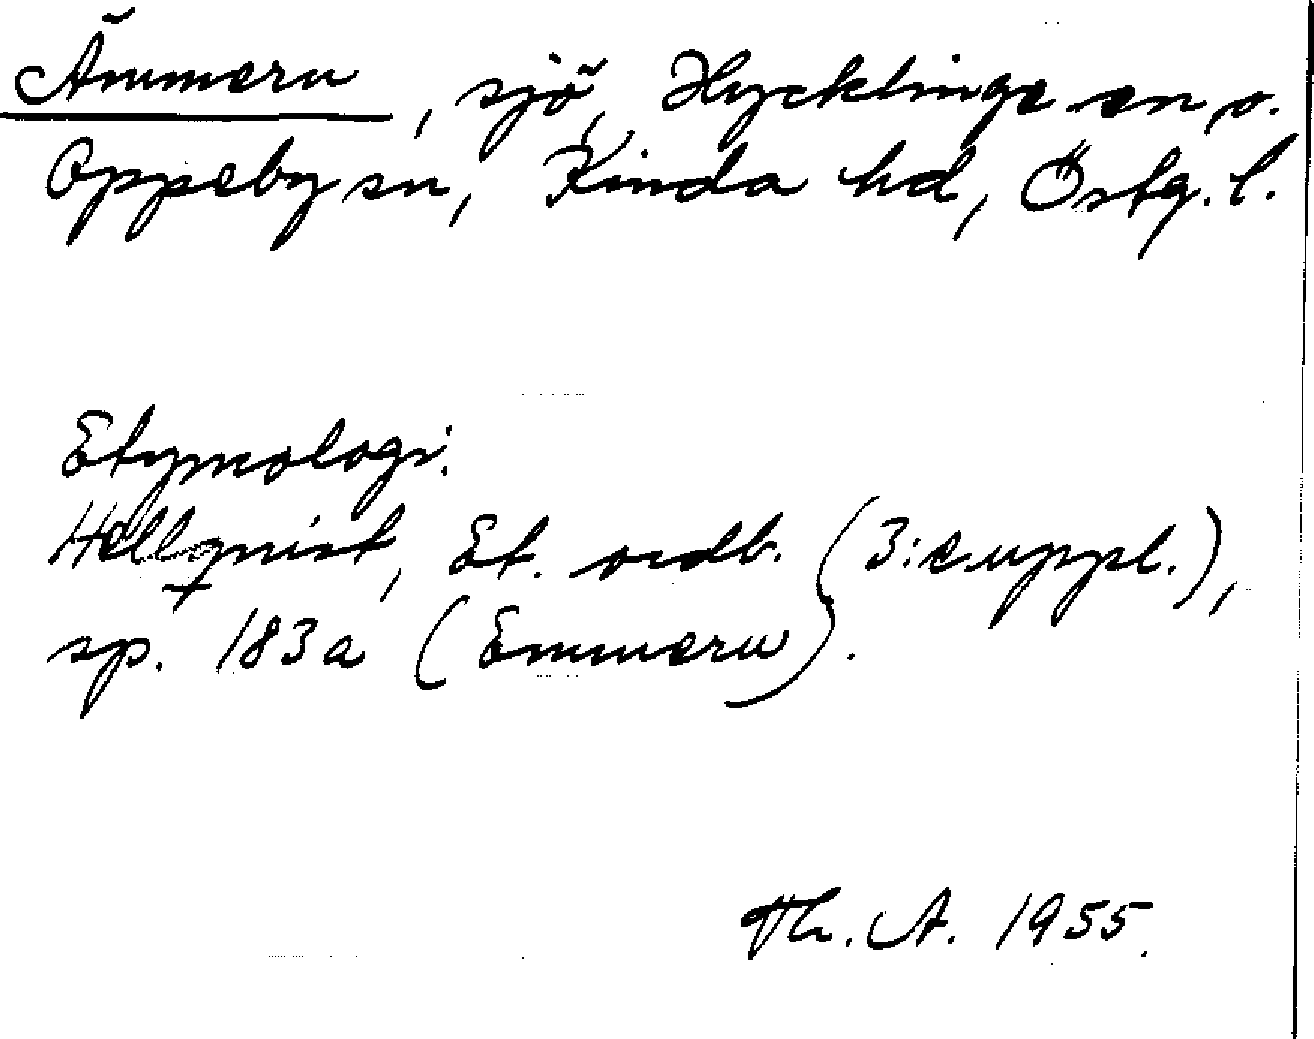 Ämmern, sjö, Hycklinge sn o.
Oppeby sn, Kinda hd, Östg. l.
Etymologi:
Hellquist, Et. ordb. (3:e uppl.),
sp. 183a (Emmern).
Th. A. 1955.